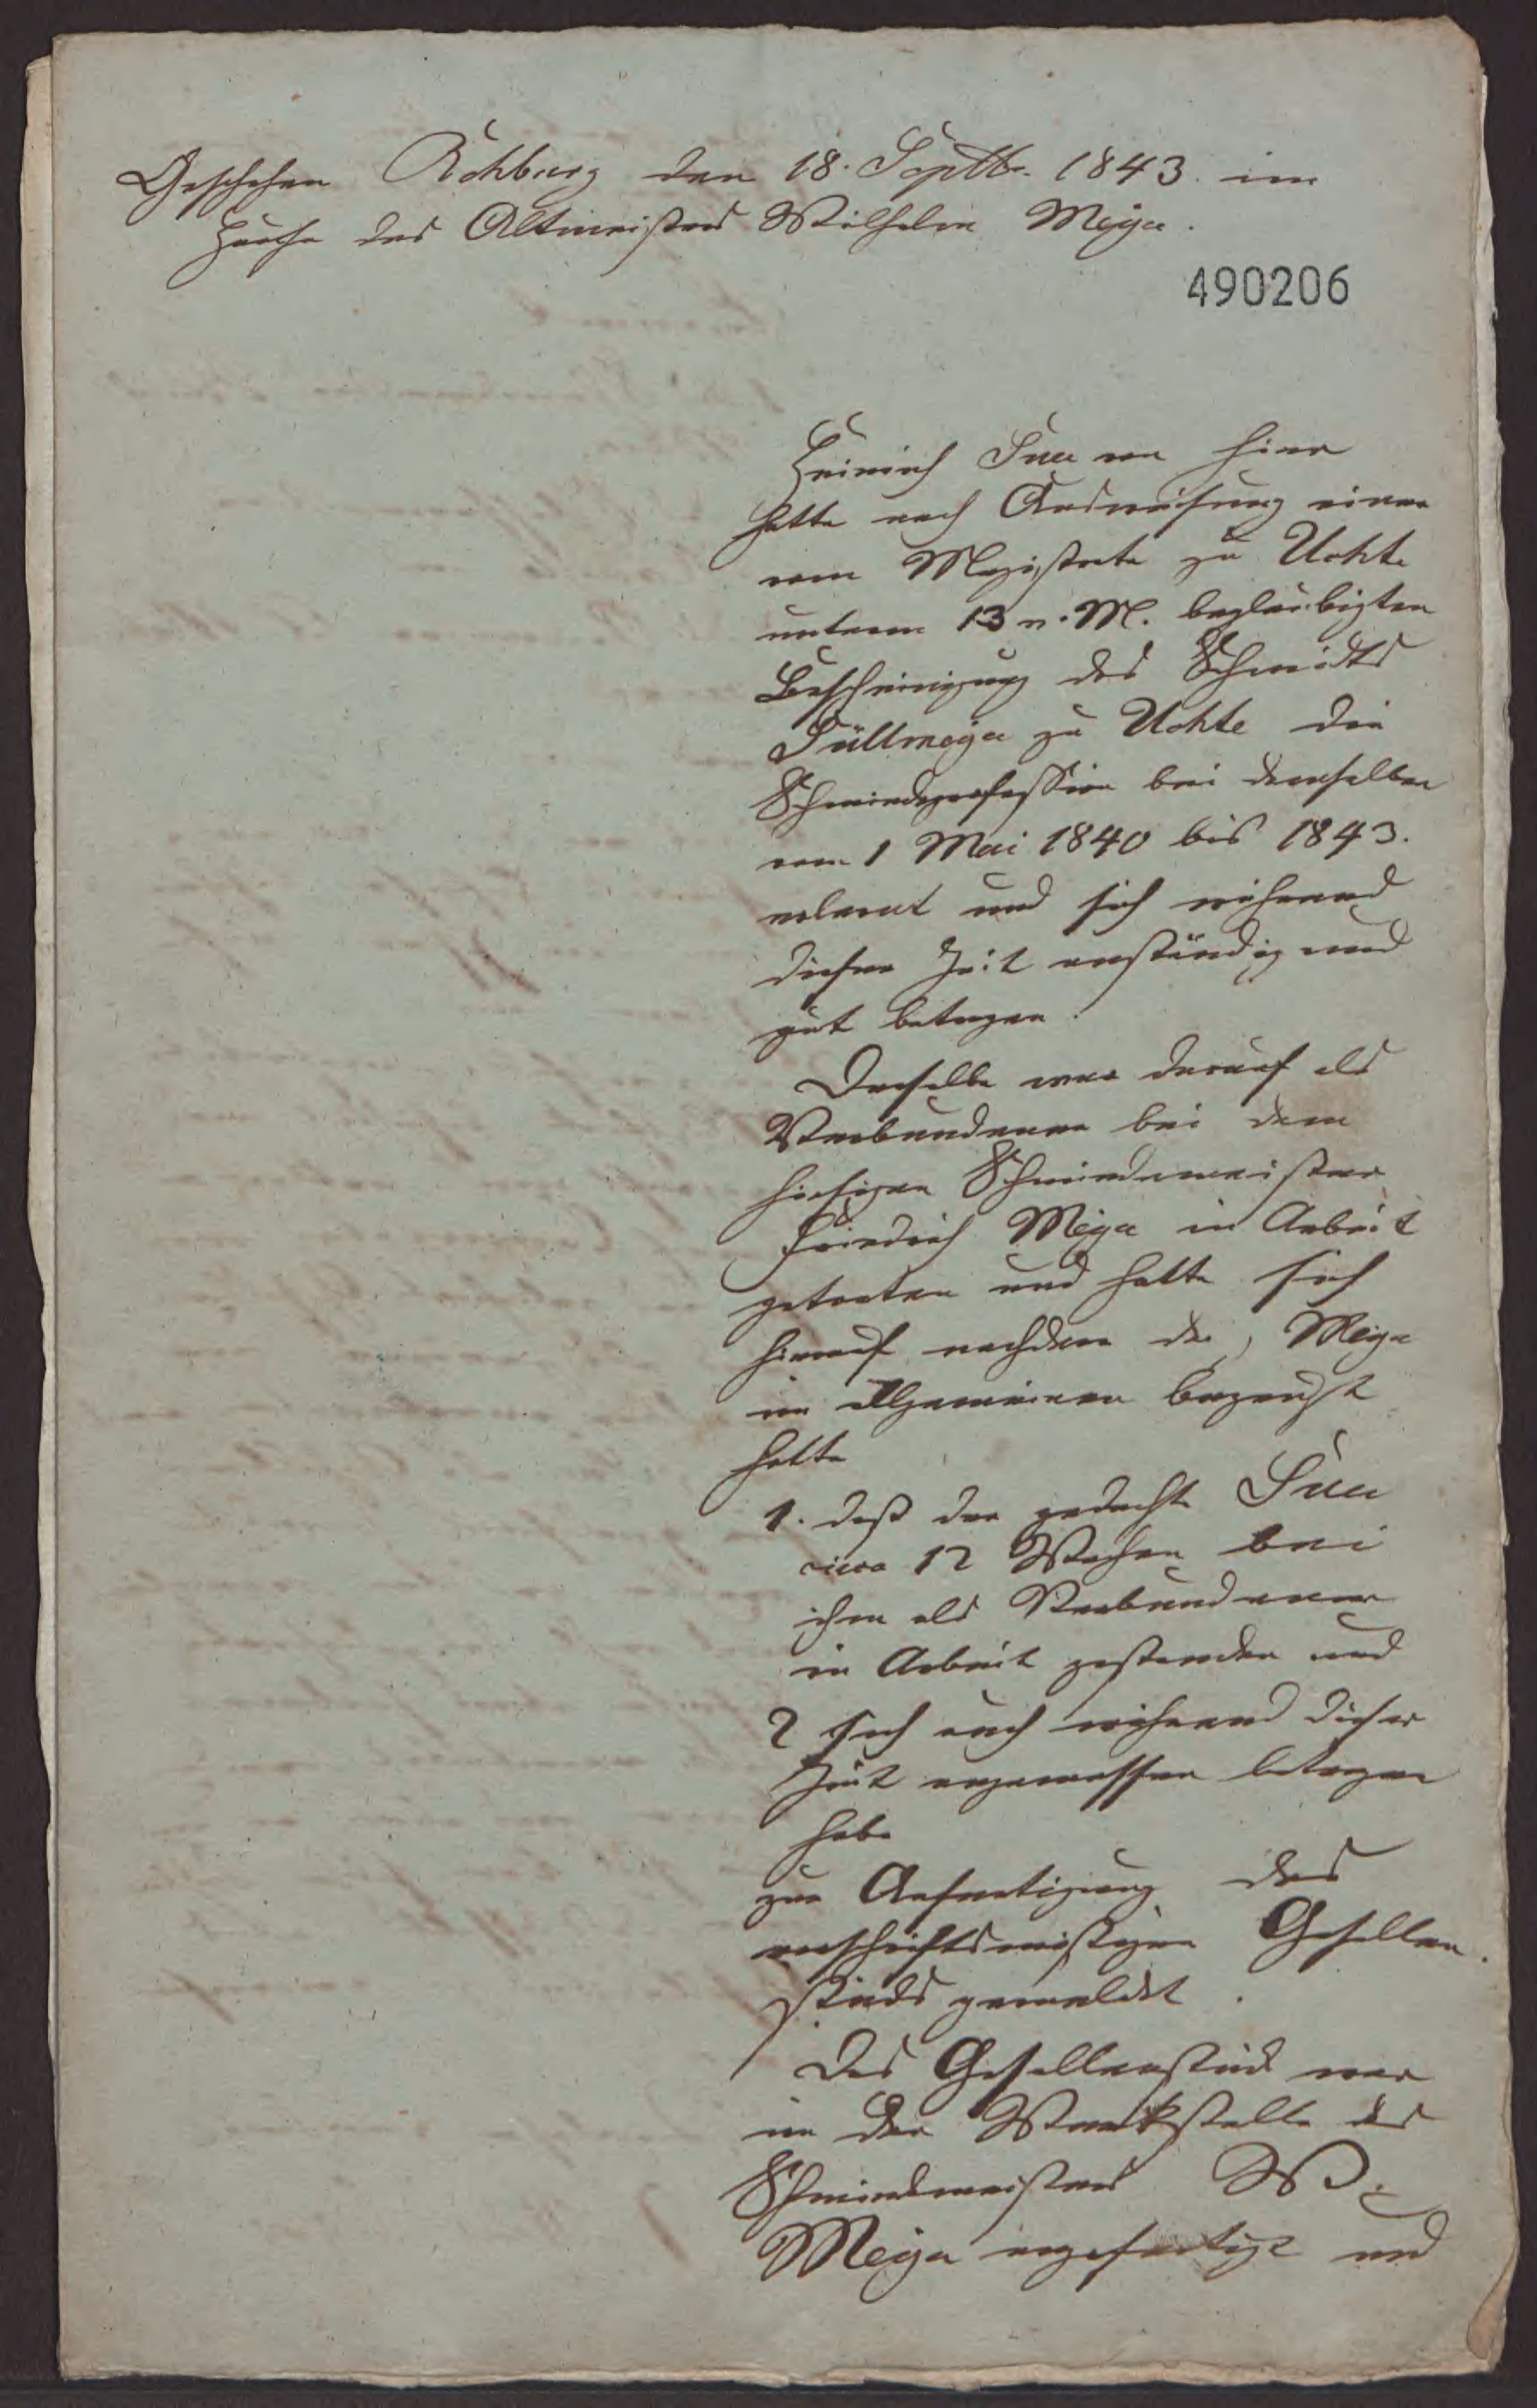 Geschehen Rehburg den 18. Septbr. 1843. im
Hause des Altmeisters Wilhelm Meyer.
490206
Heinrich von hier
hatte nach Ausweisung einer
vom Magistrate zu Uchte
unterm 13 v. M. beglaubigten
Bescheinigung des Schmidts
Süllmeyer zu Uchte die
Schmiedeprofession bei demselben
vom 1 Mai 1840 bis 1843.
erlernt und sich während
dieser Zeit anständig und
gut betragen.
Derselbe war darauf als
Verbundener bei dem
hiesigen Schmiedemeister
Friedrich Meyer in Arbeit
getreten und hatte sich
hierauf nachdem der, Meyer
im Allgemeinen bezeugt
hatte
1. daß der gedachte
circa 12 Wochen bei
ihm als Verbundener
in Arbeit gestanden und
2 sich auch während dieser
Zeit angemessen betragen
habe
zur Anfertigung des
vorschriftsmäßigen Gesellen
stücks gemeldet.
Das Gesellenstück war
in der Werkstelle des
Schmiedemeisters W.
Meyer angefertigt und